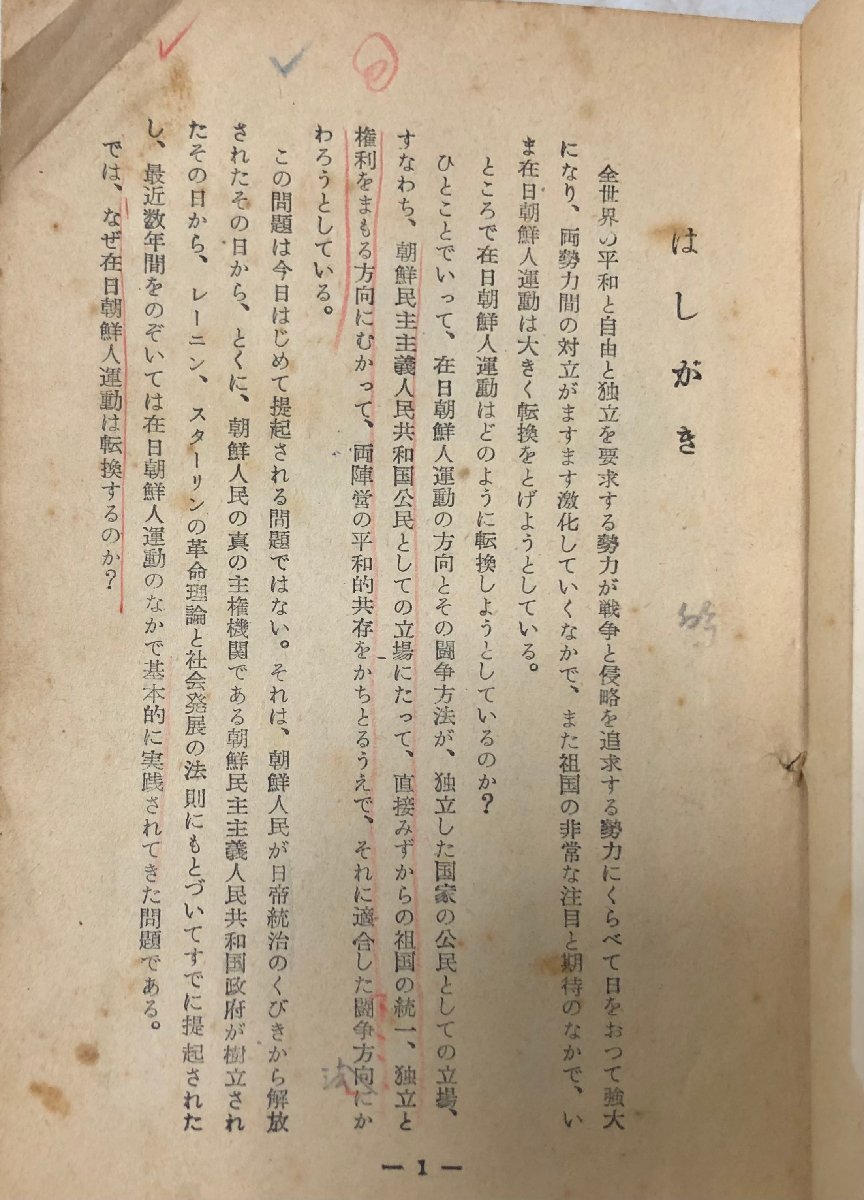 はしがき
全世界の平和と自由と独立を要求する勢力が戦争と侵略を追求する勢力にくらべて日をおつて強大
になり、両勢力間の対立がますます激化していくなかで、また祖国の非常な注目と期待のなかで、い
ま在日朝鮮人運動は大きく転換をとげようとしている。
ところで在日朝鮮人運動はどのように転換しようとしているのか?
ひとことでいって、在日朝鮮人運動の方向とその闘争方法が、独立した国家の公民としての立場、
すなわち、朝鮮民主主義人民共和国公民としての立場にたって、直接みずからの祖国の統一、独立と
権利をまもる方向にむかって、両陣営の平和的共存をかちとるうえで、それに適合した闘争方向にか
わろうとしている。
この問題は今日はじめて提起される問題ではない。それは、朝鮮人民が日帝統治のくびきから解放
されたその日から、とくに、朝鮮人民の真の主権機関である朝鮮民主主義人民共和国政府が樹立され
たその日から、レーニン、スターリンの革命理論と社会発展の法則にもとづいてすでに提起された
し、最近数年間をのぞいては在日朝鮮人運動のなかで基本的に実践されてきた問題である。
では、なぜ在日朝鮮人運動は転換するのか?
法
— 1 —